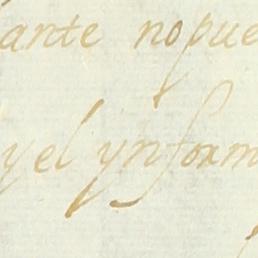 ante nopue
yel ynform